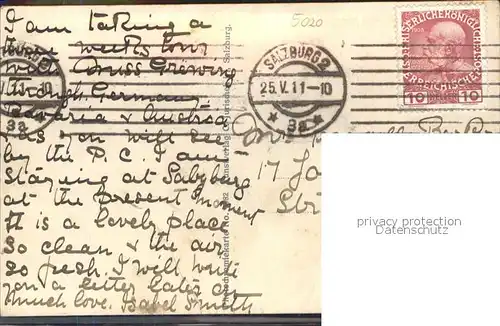 I am taking a
three weeks tour
with Miss Grewing
through Germany
Bavaria & Austria
as you will see
by the P.C. I am
staying at Salzburg
at the present moment
It is a lovely place
so clean & the air
so fresh. I will write
you a letter later on
much love. Isabel Smith
5020
SALZBURG 2
25.V.11-10
* 3a *
3a
1908
10 10
Salzburg.
17
privacy protection
Datenschutz